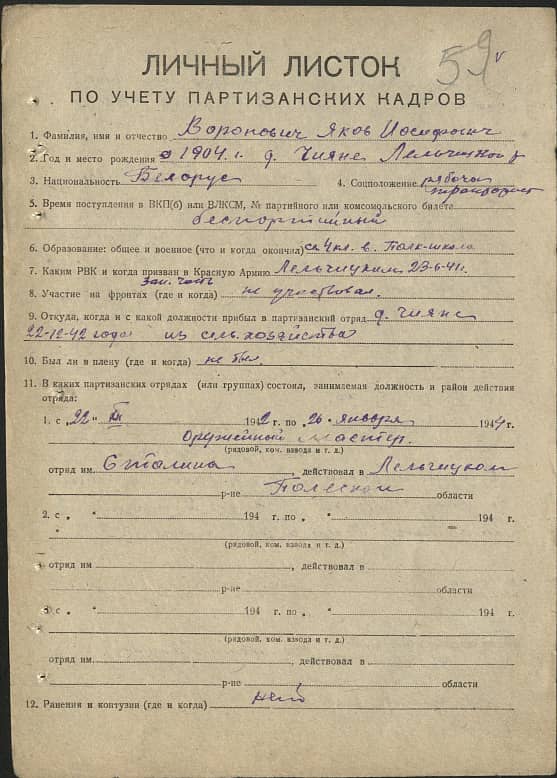 59
ЛИЧНЫЙ ЛИСТОК
ПО УЧЕТУ ПАРТИЗАНСКИХ КАДРОВ
1. Фамилия, имя и отчество Воронович Яков Иосифович
2. Год и место рождения 1904 г. д. Чияне Лельчицкой
3. Национальность Белорус 4. Соцположение рабочий
5. Время поступления в ВКП(б) или ВЛКСМ, № партийного или комсомольского билета
беспартийный
6. Образование: общее и военное (что и когда окончил) 4 кл. в. Полк-школа
7. Каким РВК и когда призван в Красную Армию Лельчицким 23-6-41 г.
зап. часть
8. Участие на фронтах (где и когда) не участвовал.
9. Откуда, когда и с какой должности прибыл в партизанский отряд д. Чияне
22-12-42 года из сельхозяйства
10. Был ли в плену (где и когда) не был.
11. В каких партизанских отрядах (или группах) состоял, занимаемая должность и район действия
отряда:
1. с „22" XII 1942 г. по „26 " января 1944 г.
оружейный мастер.
(рядовой, ком. взвода и т. д.)
отряд им. Сталина, действовал в Лельчицком
р-не Полеской области
2. с „ " 194 г. по „ " 194 г.
(рядовой, ком. взвода и т. д.)
отряд им , действовал в
р-не области
3. с „ " 194 г. по „ " 194 г.
(рядовой, ком. взвода и т. д.)
отряд им , действовал в
р-не области
12. Ранения и контузии (где и когда) нет